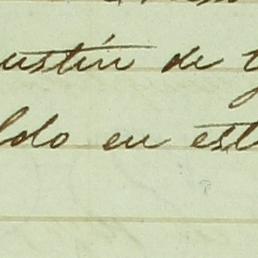 ustín de
ldo en est